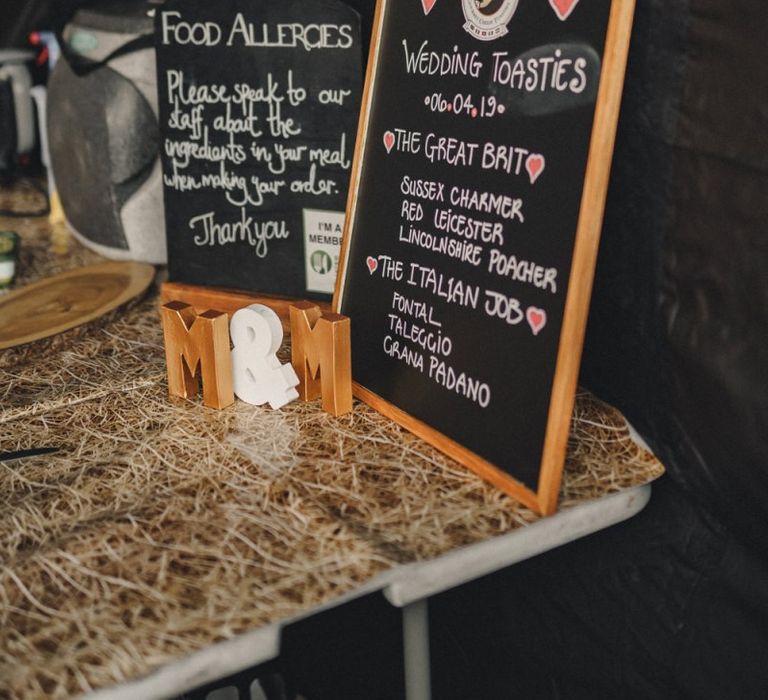 FOOD ALLERGIES
Please speak to our
staff about the
ingredients in your meal
when making your order.
Thankyou
I'M A
MEMBER
M&M
WEDDING TOASTIES
06.04.19
THE GREAT BRIT
SUSSEX CHARMER
RED LEICESTER
LINCOLNSHIRE POACHER
THE ITALIAN JOB
FONTAL
TALEGGIO
GRANA PADANO